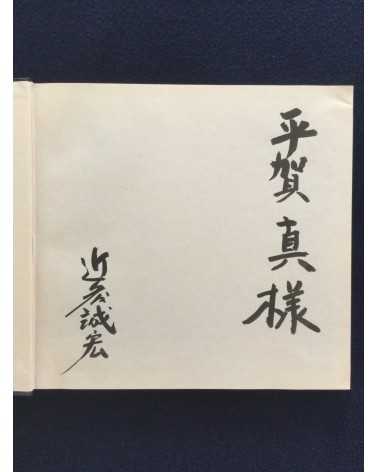 平賀真様
近彦誠宏